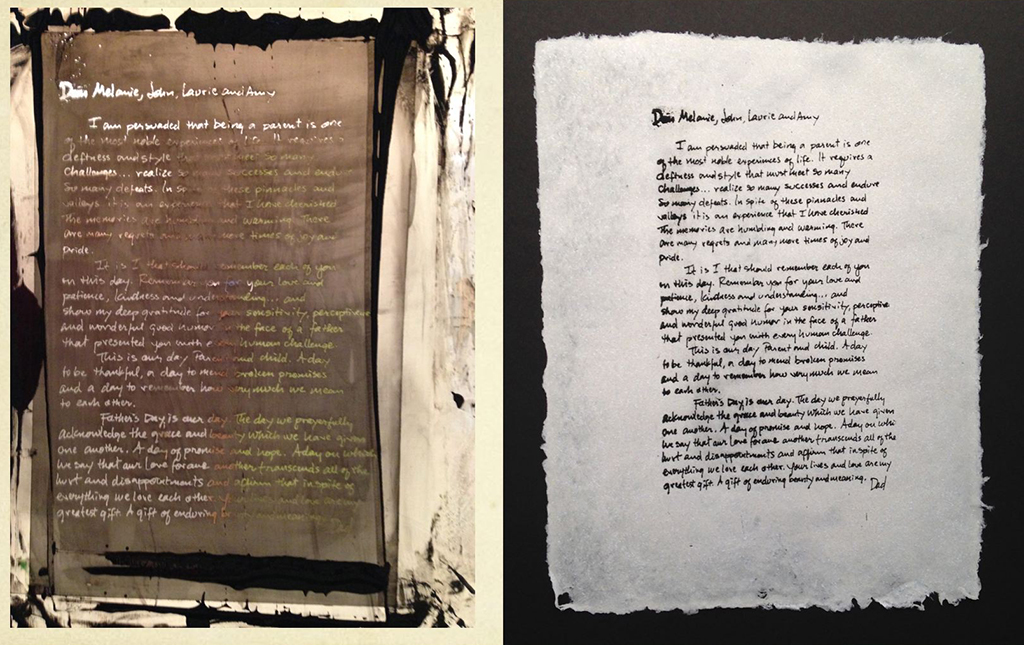 Dear Melanie, John, Laurie and Amy
I am persuaded that being a parent is one
of the most noble experiences of life. It requires a
deftness and style that must meet so many
Challenges... realize so many successes and endure
So many defeats. In spite of these pinnacles and
valleys it is an experience that I have cherished
The memories are humbling and warming. There
are many regrets and many more times of joy and
pride.
It is I that should remember each of you
on this day. Remember you for your love and
patience, kindness and understanding... and
show my deep gratitude for your sensitivity, perceptive
and wonderful good humor in the face of a father
that presented you with every human challenge.
This is our day Parent and child. A day
to be thankful, a day to mend broken promises
and a day to remember how very much we mean
to each other.
Father's Day is our day. The day we prayerfully
acknowledge the grace and beauty which we have given
one another. A day of promise and hope. A day
we say that our love for one another transcends all of the
hurt and disappointments and affirm that in spite of
everything we love each other.
greatest gift. A gift of enduring
Dad
Dear Melanie, John, Laurie and Amy
I am persuaded that being a parent is one
of the most noble experiences of life. It requires a
deftness and style that must meet so many
Challenges... realize so many successes and endure
So many defeats. In spite of these pinnacles and
valleys it is an experience that I have cherished
The memories are humbling and warming. There
are many regrets and many more times of joy and
pride.
It is I that should remember each of you
on this day. Remember you for your love and
patience, kindness and understanding... and
show my deep gratitude for your sensitivity, perceptive
and wonderful good humor in the face of a father
that presented you with every human challenge.
This is our day Parent and child. A day
to be thankful, a day to mend broken promises
and a day to remember how very much we mean
to each other.
Father's Day is our day. The day we prayerfully
acknowledge the grace and beauty which we have given
one another. A day of promise and hope. A day
we say that our love for one another transcends all of the
hurt and disappointments and affirm that in spite of
everything we love each other. Your lives and love are my
greatest gift. A gift of enduring beauty and meaning.
Dad